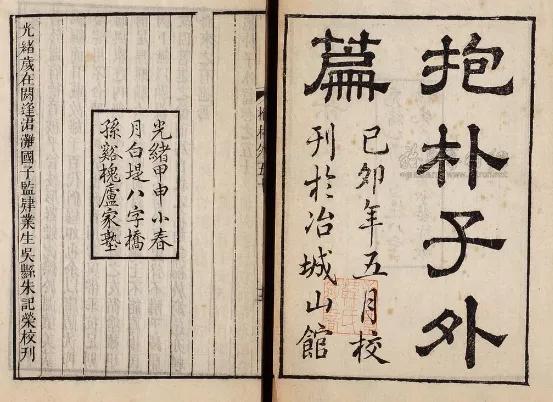 抱朴子外
篇
己卯年五月校
刊於冶城山館
光緒甲申小春
月白堤八字橋
孫谿槐廬家塾
光緒歲在閼逢涒灘國子監肄業生吳縣朱記榮校刊